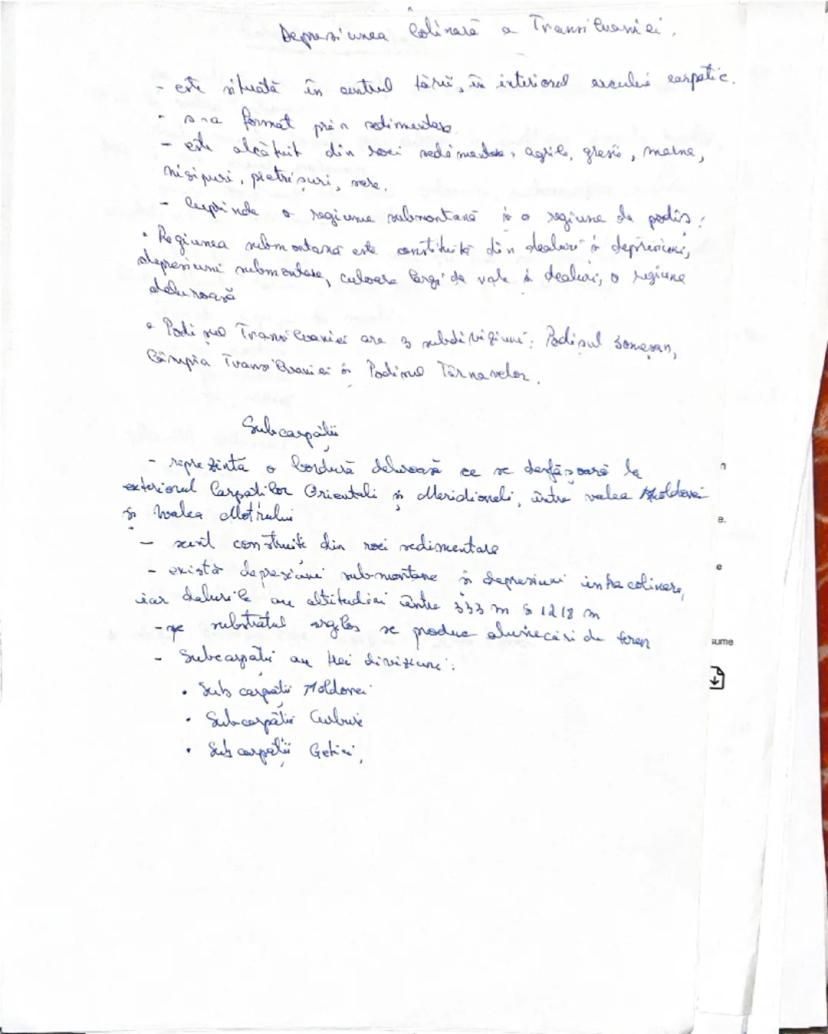 Depresiunea Colinară a Transilvaniei.
- este situată în centrul țării, în interiorul arcului carpatic.
- s-a format prin sedimentare.
- este alcătuit din roci sedimentare, agrile, gresii, marne,
nisipuri, pietrișuri, sare.
- Cuprinde o regiune submontană și o regiune de podiș:
• Regiunea submontană este constituită din dealuri și depresiuni,
depresiuni submontane, culoare largi de vale și dealuri, o regiune
deluroasă
• Podișul Transilvaniei are 3 subdiviziuni: Podișul Someșan,
Câmpia Transilvaniei și Podișul Târnavelor.
Subcarpații
- reprezintă o bordură deluroasă ce se desfășoară la
exteriorul Carpaților Orientali și Meridionali, între valea Moldovei
și Valea Motrului
- sunt construite din roci sedimentare
- există depresiuni submontane și depresiuni intracolinare,
iar dealurile au altitudini între 333 m și 1218 m
- pe substratul argilos se produc alunecări de teren
- Subcarpații au trei diviziuni:
• Subcarpații Moldovei
• Subcarpații Curburii
• Subcarpații Getici,
e.
e
sume